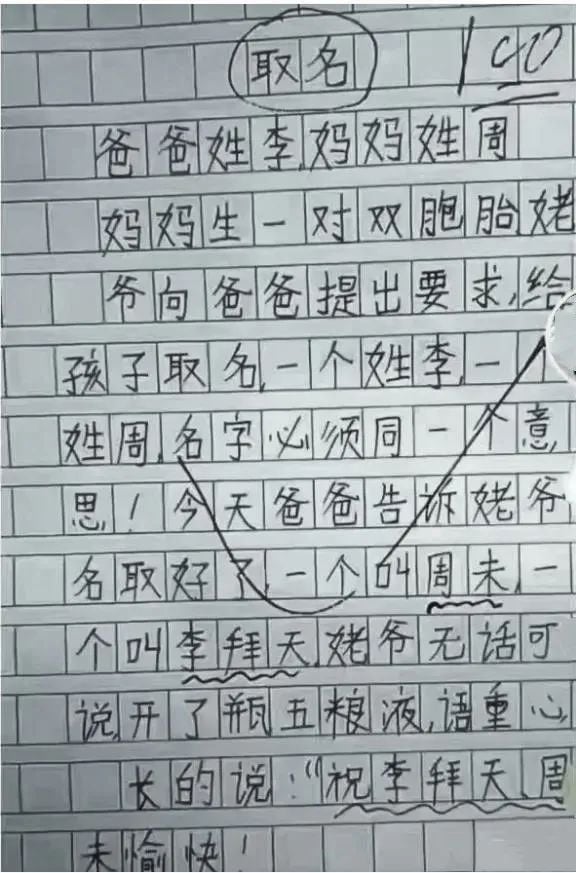 取名
100
爸爸姓李,妈妈姓周
妈妈生一对双胞胎姥
爷向爸爸提出要求,给
孩子取名,一个姓李,一个
姓周,名字必须同一个意
思!今天爸爸告诉姥爷
名取好了,一个叫周未,一
个叫李拜天,姥爷无话可
说,开了瓶五粮液,语重心
长的说:“祝李拜天、周
未愉快!